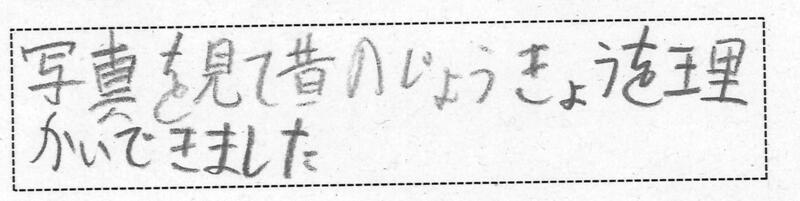 写真を見て昔のじょうきょうを理
かいできました